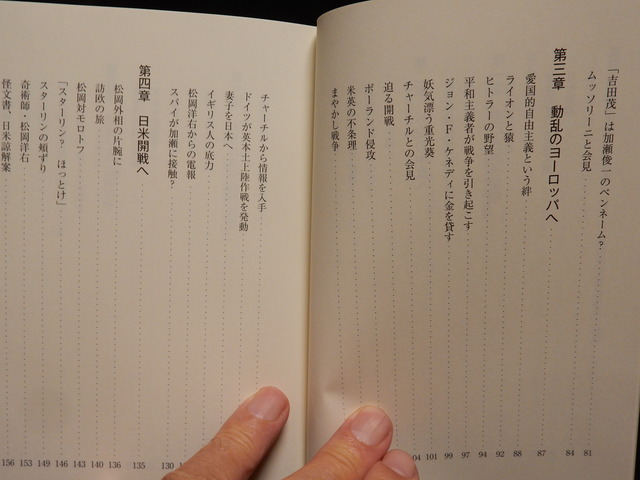 「吉田茂」は加瀬俊一のペンネーム？ 81
ムッソリーニと会見 84
第三章　動乱のヨーロッパへ 87
愛国的自由主義という絆 88
ライオンと猿 92
ヒトラーの野望 94
平和主義者が戦争を引き起こす 97
ジョン・F・ケネディに金を貸す 99
妖気漂う重光葵 101
チャーチルとの会見 04
迫る開戦
ポーランド侵攻
米英の不条理
まやかし戦争
チャーチルから情報を入手
ドイツが英本土上陸作戦を発動
妻子を日本へ
イギリス人の底力
松岡洋右からの電報
スパイが加瀬に接触？ 130
第四章　日米開戦へ 135
松岡外相の片腕に 136
訪欧の旅 140
松岡対モロトフ 143
「スターリン？　ほっとけ」 146
スターリンの頬ずり 149
奇術師・松岡洋右 153
怪文書、日米諒解案 156